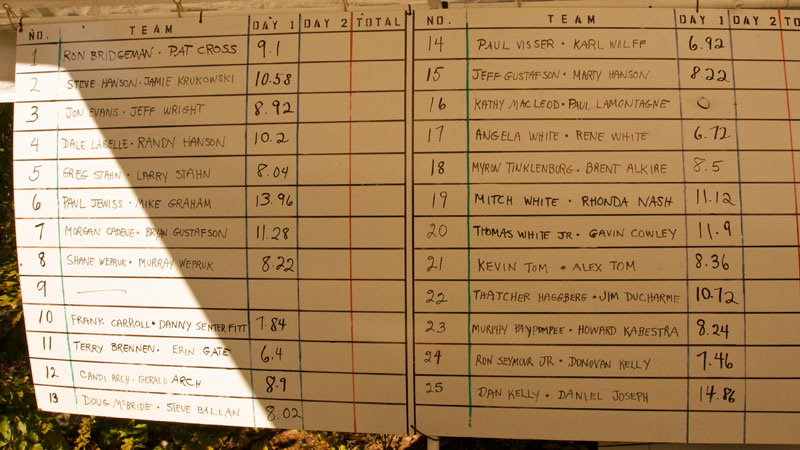 NO. TEAM DAY 1 DAY 2 TOTAL
1 RON BRIDGEMAN · PAT CROSS 9.1
2 STEVE HANSON · JAMIE KRUKOWSKI 10.58
3 JON EVANS · JEFF WRIGHT 8.92
4 DALE LABELLE · RANDY HANSON 10.2
5 GREG STAHN · LARRY STAHN 8.04
6 PAUL JEWISS · MIKE GRAHAM 13.96
7 MORGAN CADENE · BRYAN GUSTAFSON 11.28
8 SHANE WEPRUK · MURRAY WEPRUK 8.22
9
10 FRANK CARROLL · DANNY SENTERFITT 7.84
11 TERRY BRENNEN · ERIN GATE 6.4
12 CANDI ARCH · GERALD ARCH 8.9
13 DOUG McBRIDE · STEVE BALLAN 8.02
NO. TEAM DAY 1 DAY 2 TO
14 PAUL VISSER · KARL WOLFF 6.92
15 JEFF GUSTAFSON · MARTY HANSON 8.22
16 KATHY MACLEOD · PAUL LAMONTAGNE 0
17 ANGELA WHITE · RENE WHITE 6.72
18 MYRON TINKLENBURG · BRENT ALKIRE 8.5
19 MITCH WHITE · RHONDA NASH 11.12
20 THOMAS WHITE JR · GAVIN COWLEY 11.9
21 KEVIN TOM · ALEX TOM 8.36
22 THATCHER HAGGBERG · JIM DUCHARME 10.72
23 MURPHY PAYPOMPEE · HOWARD KABESTRA 8.24
24 RON SEYMOUR JR · DONOVAN KELLY 7.46
25 DAN KELLY · DANIEL JOSEPH 14.86